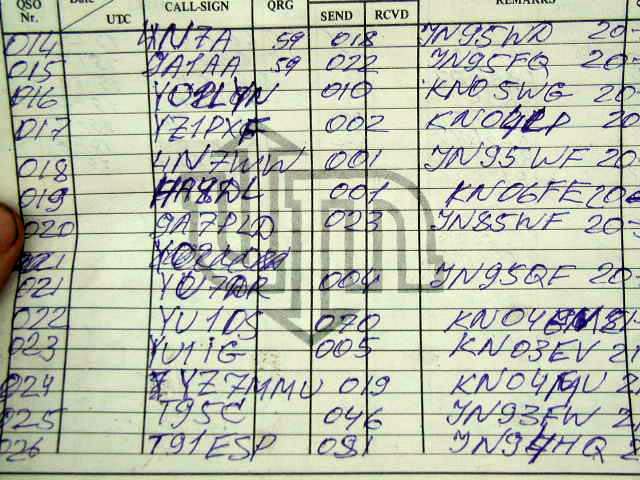 QSO Date UTC CALL-SIGN QRG SEND RCVD REMARKS
Nr.
014 4N7A 59 018 JN95WD 20
015 9A1AA 59 022 JN95FQ 20
016 010 KN05WG 20
017 YZ1PXF 002 20
018 4N7WW 001 JN95WF 20
019 HA8DL 001 KN06FE 20
020 9A7PLD 023 JN85WF 20
021 004 JN95QF 20
022 YU1DS 070 KN04
023 YU1IG 005 KN03EV
024 YZ7MMU 019
025 T95C 046 JN93FW
026 T91ESP 081 JN94HQ